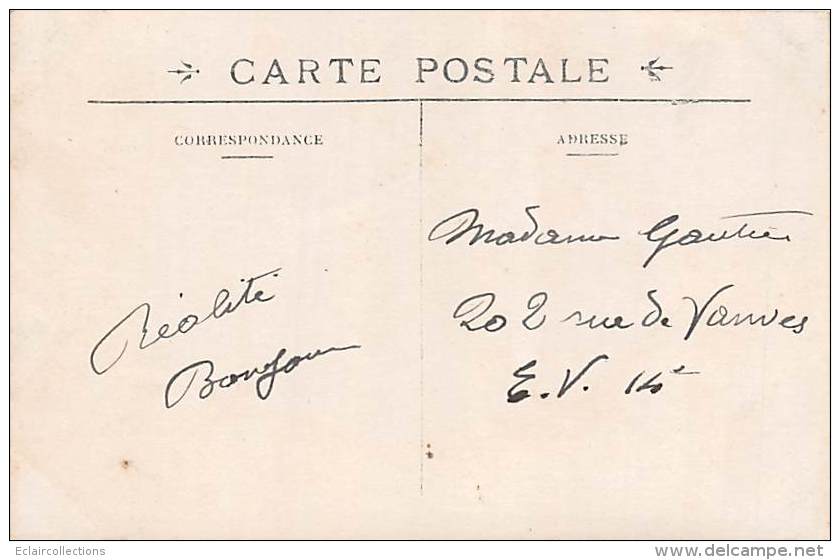 CARTE POSTALE
CORRESPONDANCE
ADRESSE
Réalité
Bonjour
Madame Gautier
202 rue de Vanves
E.V. 14e
Eclaircollections
www.delcampe.net